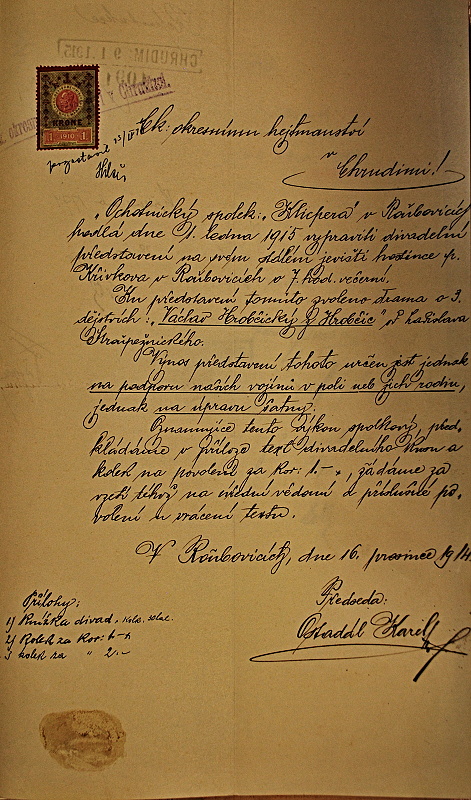 CHRUDIM 9.I.1915
KRONE
1 1910 1
Ck. okresnímu hejtmanství
v Chrudimi!
„Ochotnický spolek: „Klicpera" v Roubovicích
hodlá dne 1. ledna 1915 vypraviti divadelní
představení na svém stálém jevišti hostince p.
Křivkova v Roubovicích o 7. hod. večerní.
Ku představení tomuto zvoleno drama o 3.
dějstvích: „Václav Hrobčický z Hrobčic" od Ladislava
Stroupežnického.
Výnos představení tohoto určen jest jednak
na podporu našich vojínů v poli neb jich rodin,
jednak na úpravu šatny.
Oznamujíce tento výkon spolkový, před-
kládáme v příloze text divadelního kusu a
kolek na povolení za kor: 1.-, žádáme za
vzetí téhož na úřední vědomí a příslušné po-
volení u vrácení textu.
V Roubovicích, dne 16. prosince 1914.
Přílohy:
1) Knížka divad.
2) Kolek za kor: 1.-
3 kolek za " 2.-
Předseda:
Ostadál Karel